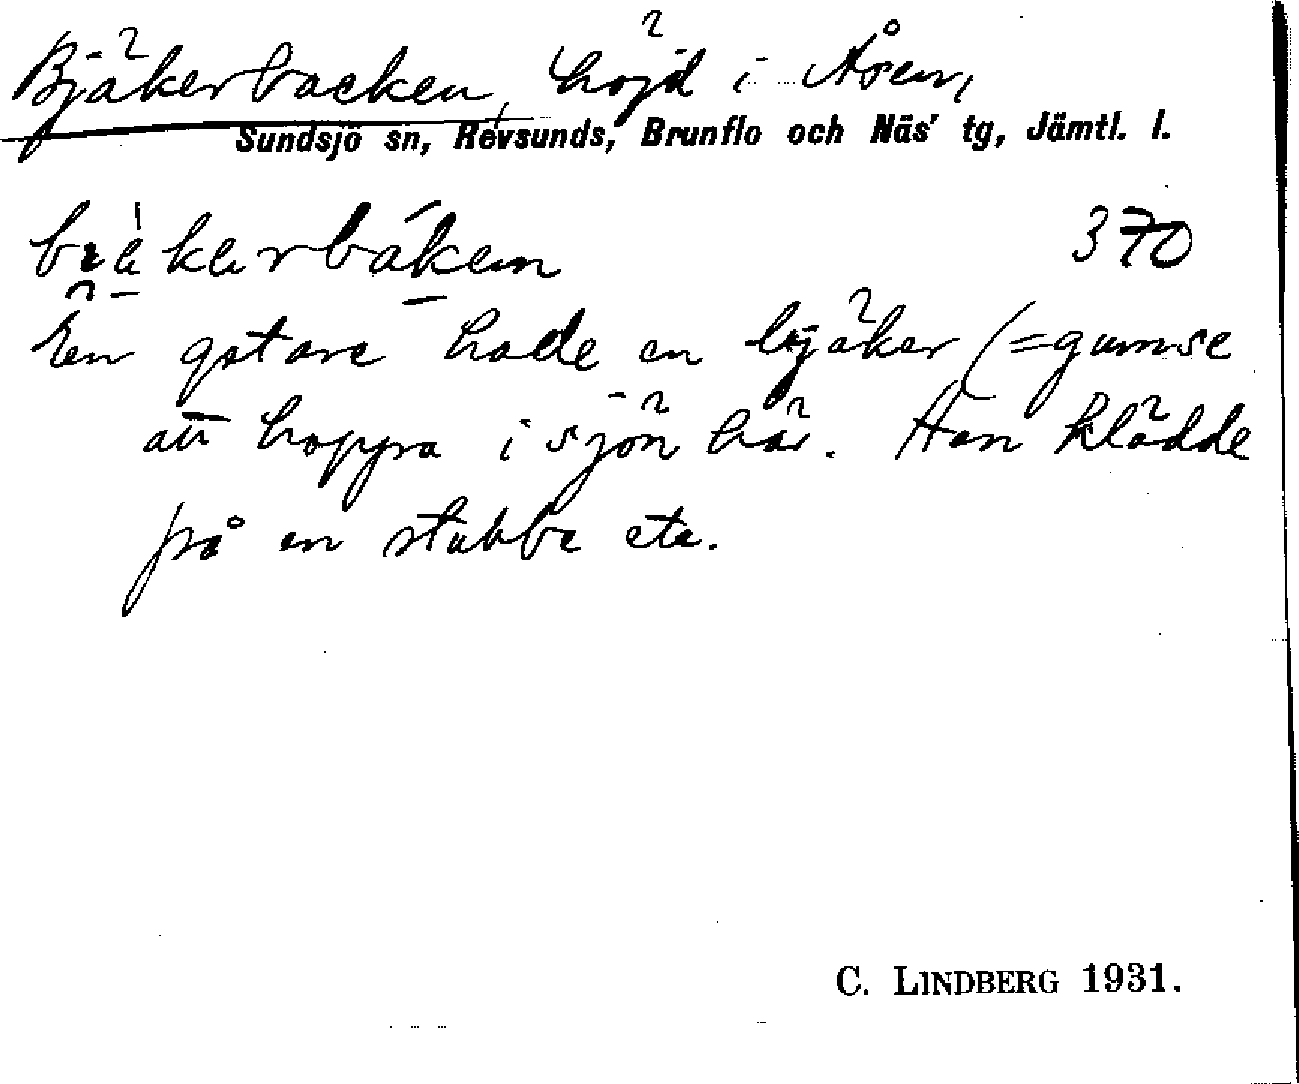 Bjäkerbacken, höjd i Åsen,
Sundsjö sn, Revsunds, Brunflo och Näs' tg, Jämtl. l.
370
En gstare hade en bjäker (=gumse
att hoppa i sjön här. Han klädde
på en stubbe etc.
C. LINDBERG 1931.